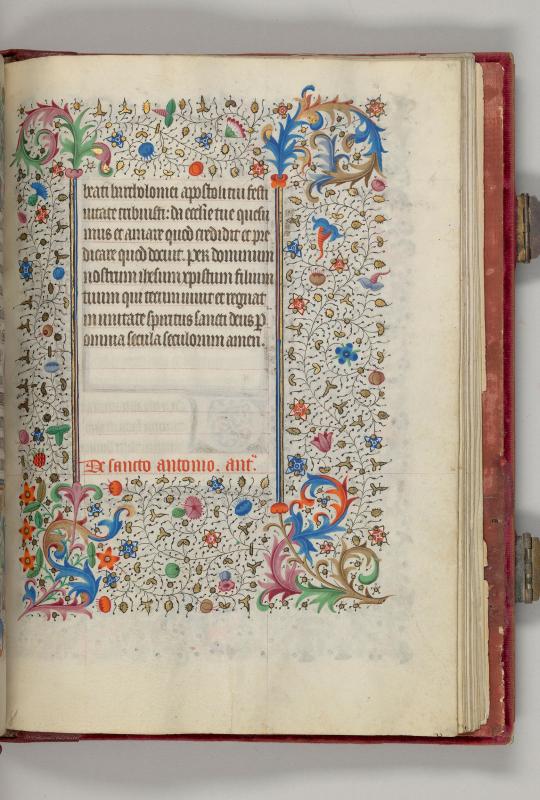 beati bartholomei apostoli tui festi
uitate tribuisti: da ecclie tue quesu
mus et amare quod credidit et pre
dicare quod docuit. per dominum
nostrum ihesum xpistum filium
tuum qui tecum uiuit et regnat
in unitate spiritus sancti deus p
omnia secula seculorum amen.
De sancto antonio. ant.